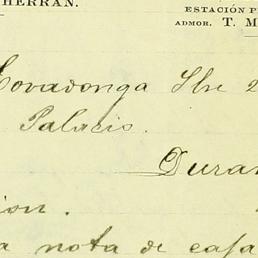 HERRAN.
ESTACIÓN P
ADMOR. T. M
Covadonga Sbre 2
Palacio.
Duran
ion.
a nota de casa